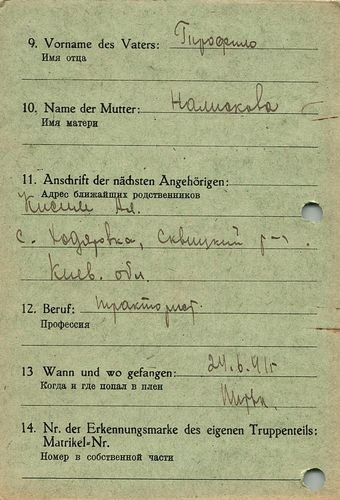 9. Vorname des Vaters:
Имя отца
10. Name der Mutter:
Имя матери
11. Anschrift der nächsten Angehörigen:
Адрес ближайших родственников
с. Ходяровка, Сквицкий р-н.
Киев. обл.
12. Beruf: тракторист.
Профессия
13 Wann und wo gefangen: 24.6.41г
Когда и где попал в плен
14. Nr. der Erkennungsmarke des eigenen Truppenteils:
Matrikel-Nr.
Номер в собственной части